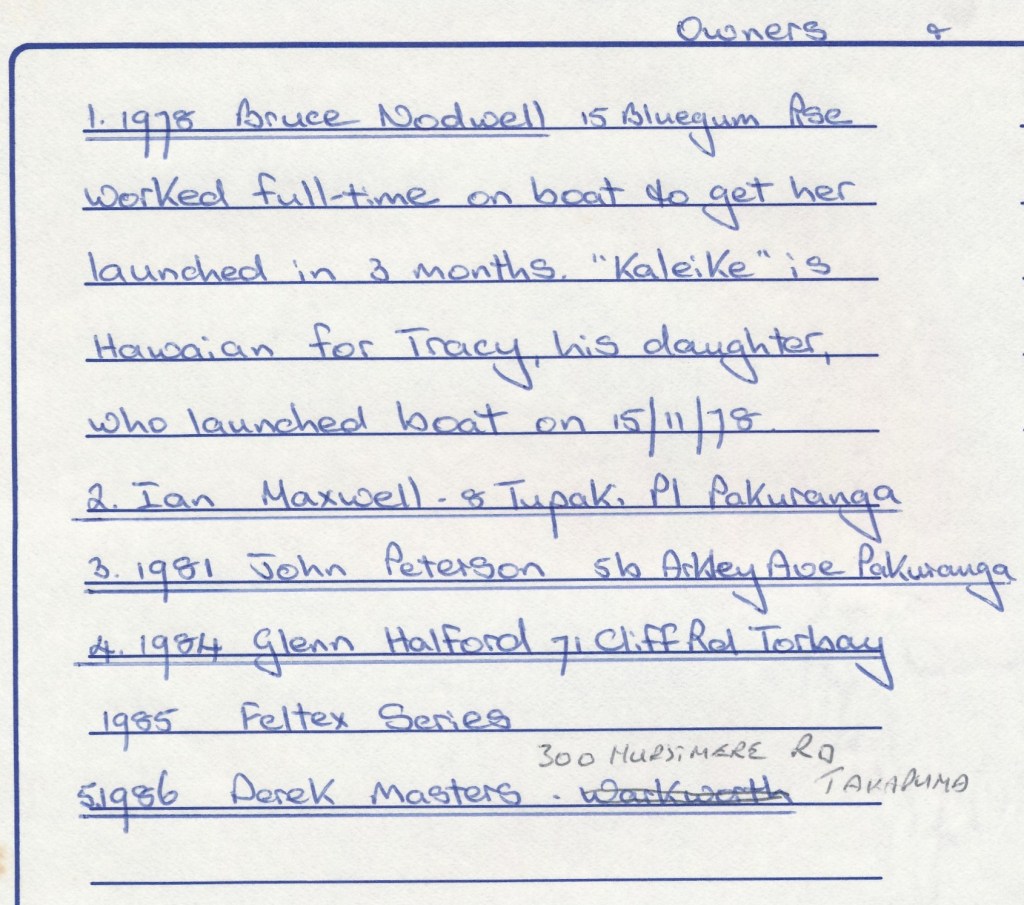 Owners &
1. 1978 Bruce Nodwell 15 Bluegum Rse
worked full-time on boat to get her
launched in 3 months. "Kaleike" is
Hawaian for Tracy, his daughter,
who launched boat on 15/11/78.
2. Ian Maxwell - 8 Tupaki Pl Pakuranga
3. 1981 John Peterson 5b Arkley Ave Pakuranga
4. 1984 Glenn Halford 71 Cliff Rd Torbay
1985 Feltex Series
300 HURSTMERE RD
5. 1986 Derek Masters - Warkworth TAKAPUNA